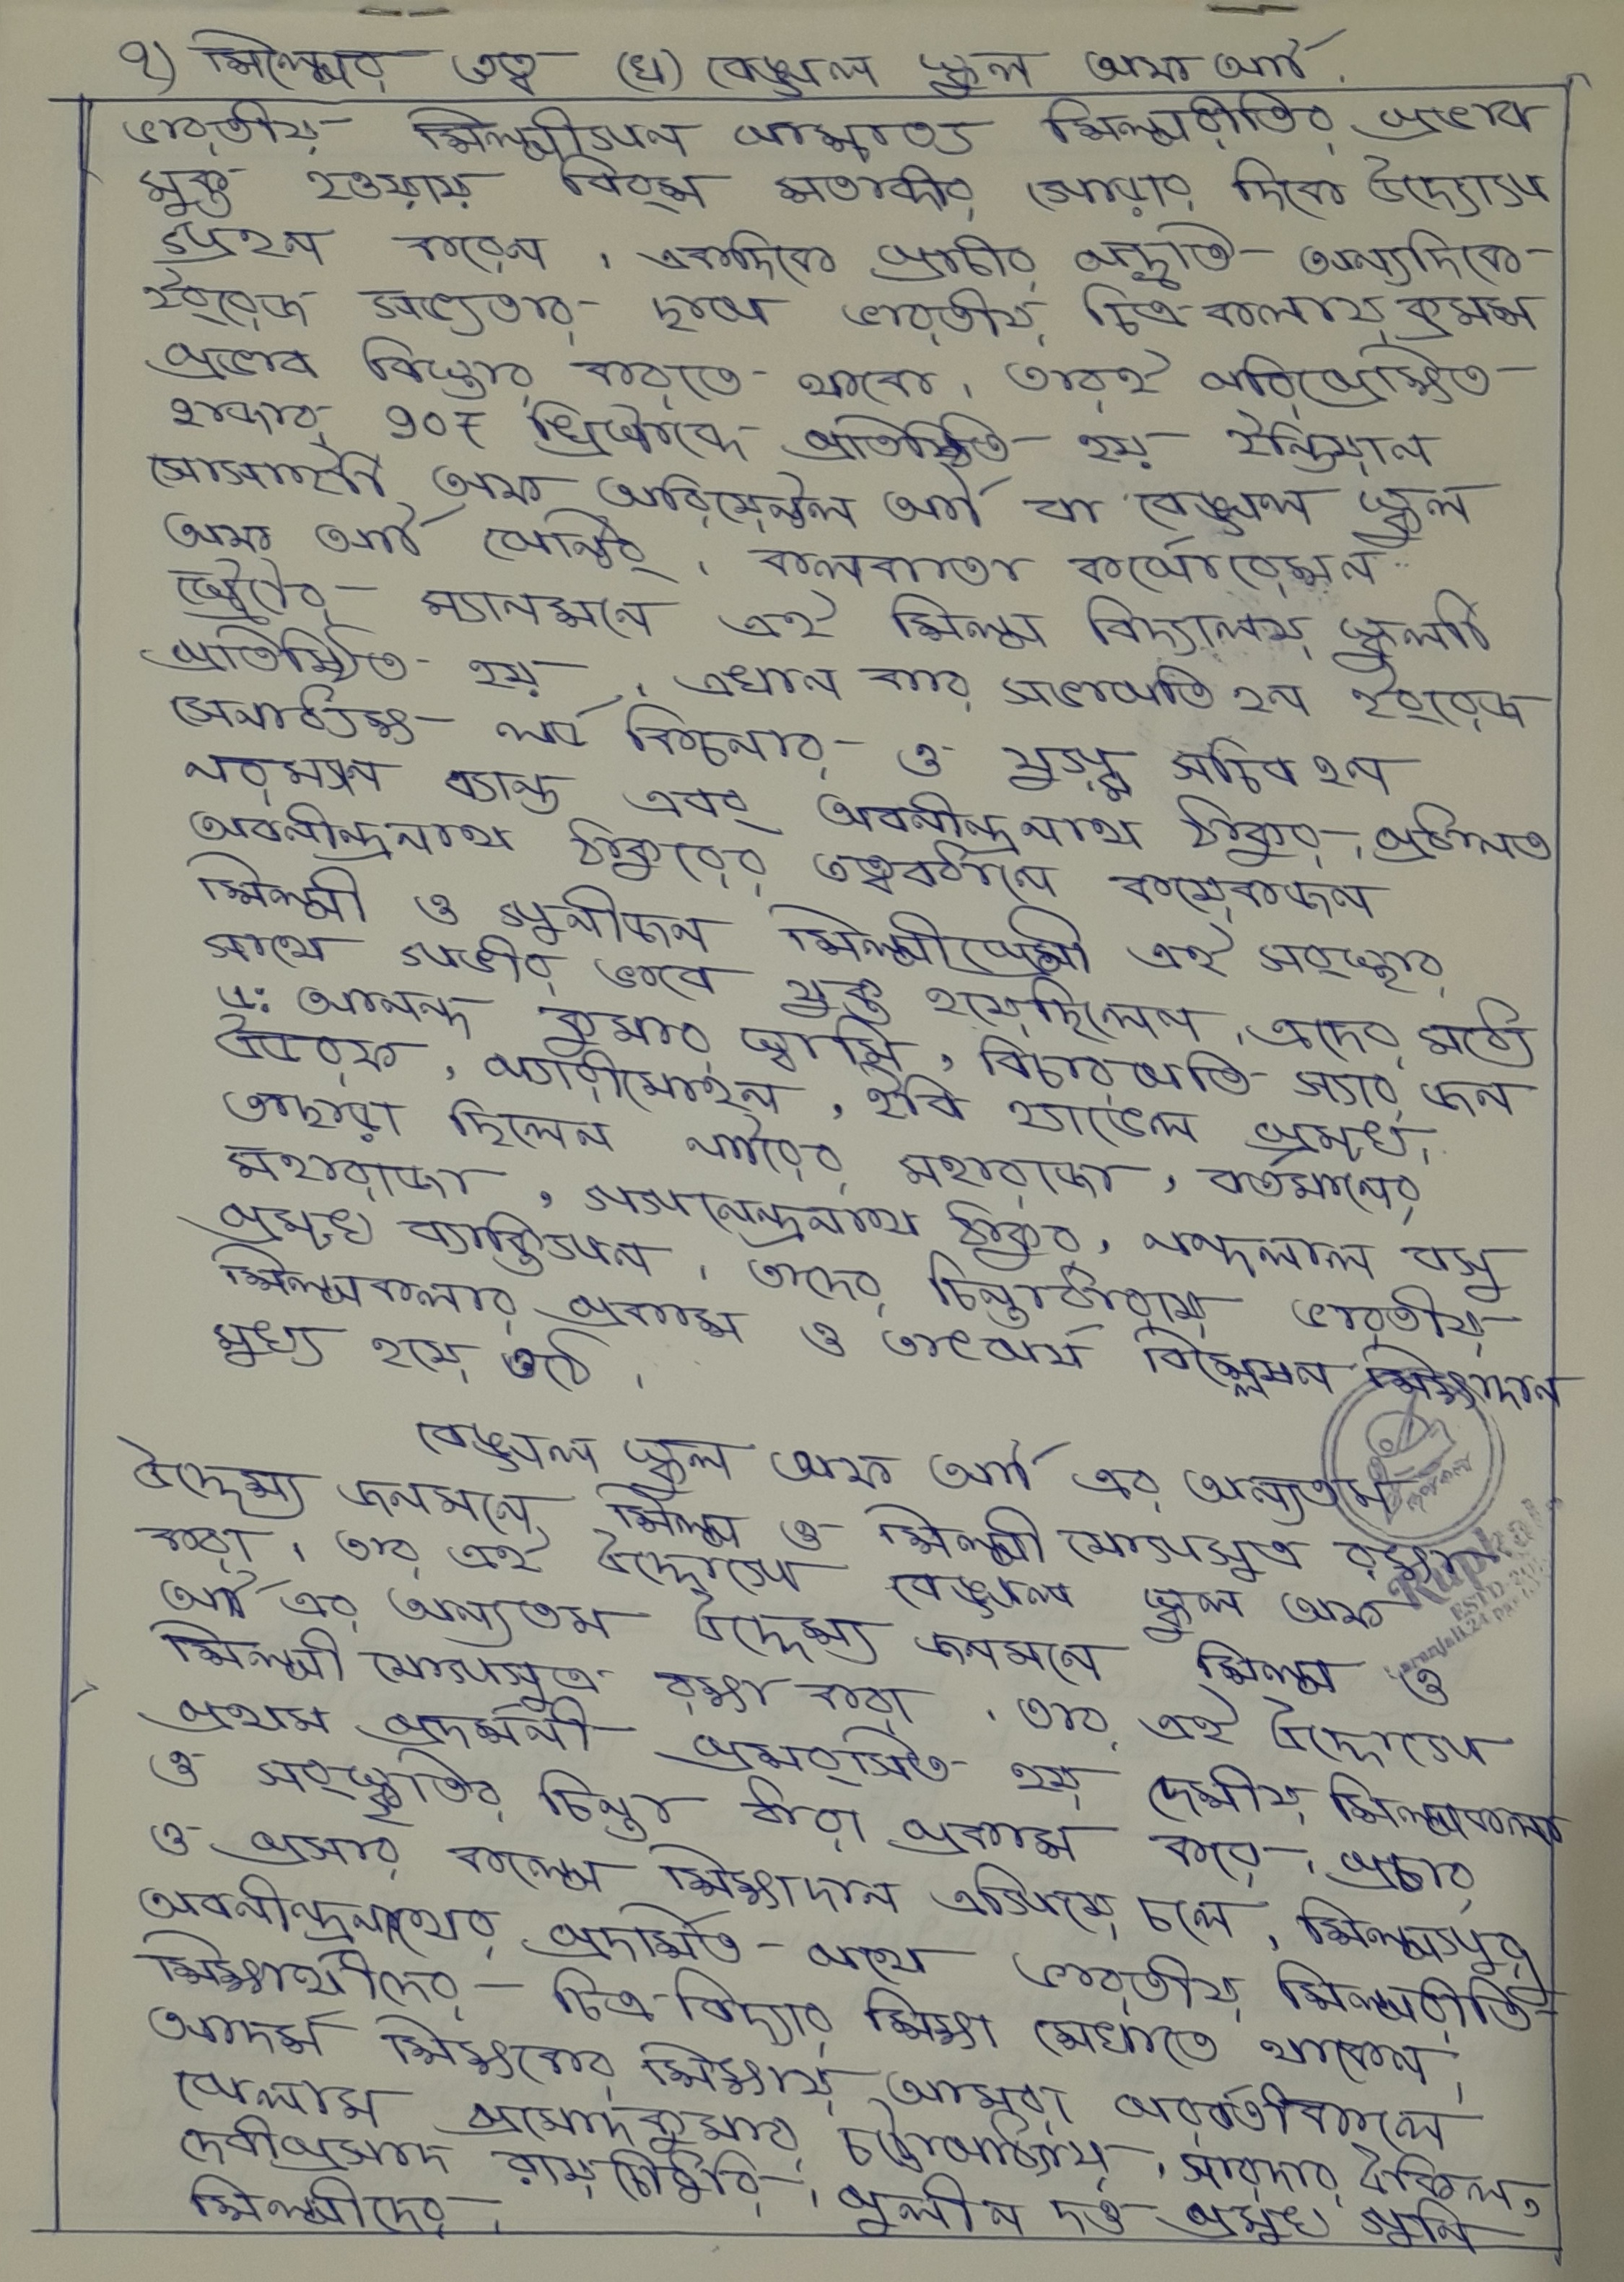 ৭) শিল্পের তত্ব (ঘ) বেঙ্গল স্কুল অফ আর্ট.
ভারতীয় শিল্পীগন পাশ্চাত্য শিল্পরীতির প্রভাব
মুক্ত হওয়ায় বিংশ শতাব্দীর গোরার দিকে উদ্যোগ
গ্রহন করেন । একদিকে প্রাচীর পদ্ধতি অন্যদিকে
ইংরেজ সভ্যতার ছাপ ভারতীয় চিত্রকলায় ক্রমশ
প্রভাব বিস্তার করতে থাকে । তারই পরিপ্রেক্ষিত
হাজার 907 খ্রিষ্টাব্দে প্রতিষ্ঠিত হয় ইন্ডিয়ান
সোসাইটী অফ অরিয়েন্টল আর্ট বা বেঙ্গল স্কুল
অফ আর্ট পেন্টিং । কলকাতা কর্পোরেশন
স্ট্রেটের ম্যানশনে এই শিল্প বিদ্যালয় স্কুলটি
প্রতিষ্ঠিত হয় । এখান কার সভাপতি হন ইংরেজ
সেনাধ্যিক্ষ লর্ড কিচনার ও যুগ্ম সচিব হন
নরম্যান ব্যান্ড এবং অবনীন্দ্রনাথ ঠাকুর, প্রচলিত
অবনীন্দ্রনাথ ঠাকুরের তত্ববধানে কয়েকজন
শিল্পী ও গুনীজন শিল্পীপ্রেমী এই সংস্থার
সাথে গভীর ভাবে যুক্ত হয়েছিলেন, এদের মধ্যে
ডঃ আনন্দ কুমার স্বামি, বিচারপতি স্যার জন
উডরফ, প্যারীমোহন, ইবি হ্যাভেল প্রমুখ,
তাছারা ছিলেন নাটোর মহারাজা, বর্তমানের
মহারাজা, গগনেন্দ্রনাথ ঠাকুর, নন্দলাল বসু
প্রমুখ ব্যাক্তিগন, তাদের চিন্তাধারায় ভারতীয়
শিল্পকলার প্রকাশ ও তাৎপর্য বিশ্লেষন শিক্ষাদান
মুখ্য হয়ে ওঠে ।
বেঙ্গল স্কুল অফ আর্ট এর অন্যতম
উদ্দেশ্য জনমনে শিল্প ও শিল্পী যোগসুত্র রক্ষা
করা, তার এই উদ্দ্যোগে বেঙ্গল স্কুল অফ
আর্ট এর অন্যতম উদ্দেশ্য জনমনে শিল্প ও
শিল্পী যোগসুত্র রক্ষা করা, তার এই উদ্দ্যোগে
প্রথম প্রদর্শনী প্রশংসিত হয় দেশীয় শিল্পকলা
ও সংস্কৃতির চিন্তা ধারা প্রকাশ করে, প্রচার
ও প্রসার কল্পে শিক্ষাদান এগিয়ে চলে, শিল্পগুরু
অবনীন্দ্রনাথের প্রদর্শিত পথে ভারতীয় শিল্পরীতি
শিক্ষার্থীদের চিত্র বিদ্যার শিক্ষা শেখাতে থাকেন,
আদর্শ শিক্ষকের শিক্ষায় আমরা পরবর্তীকালে
পেলাম প্রমোদকুমার চট্টোপাধ্যায়, সারদার উকিল,
দেবীপ্রসাদ রায়চৌধুরি, পুলীন দত্ত প্রমুখ গুনি
শিল্পীদের,
Rupk
ESTD-2